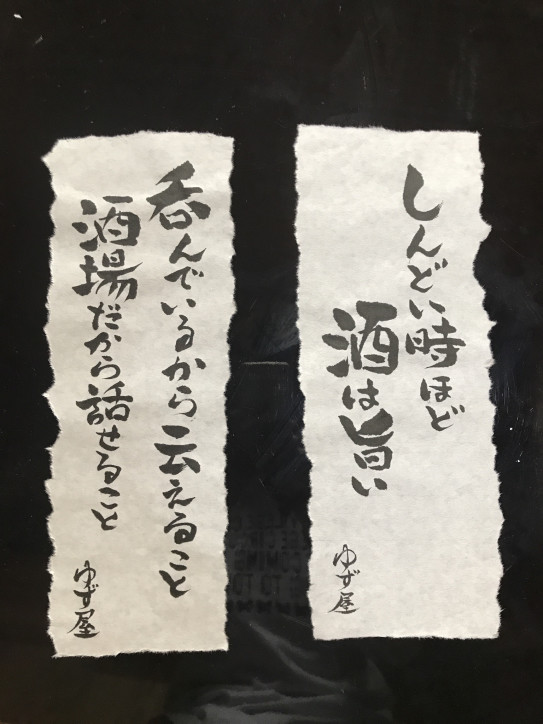 しんどい時ほど
酒は旨い
ゆず屋
呑んでいるから云えること
酒場だから話せること
ゆず屋